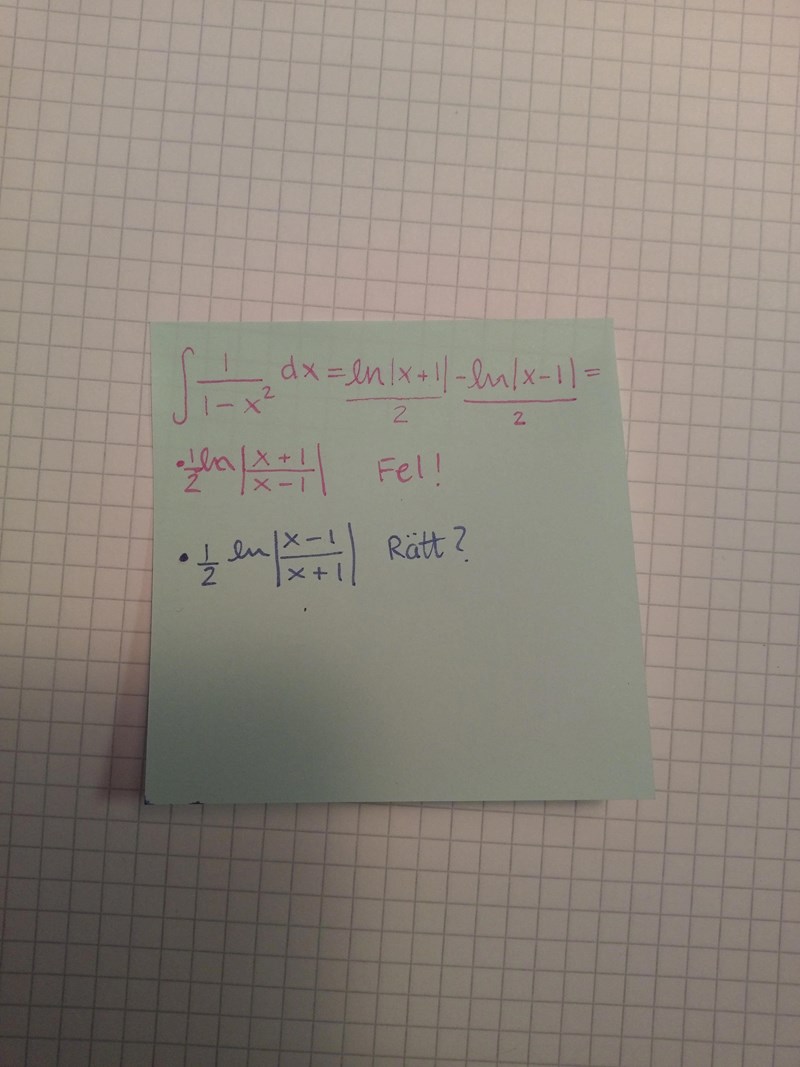 ∫ 1/(1 - x²) dx = ln|x+1|/2 - ln|x-1|/2 =
• 1/2 ln |(x+1)/(x-1)| Fel!
• 1/2 ln |(x-1)/(x+1)| Rätt?